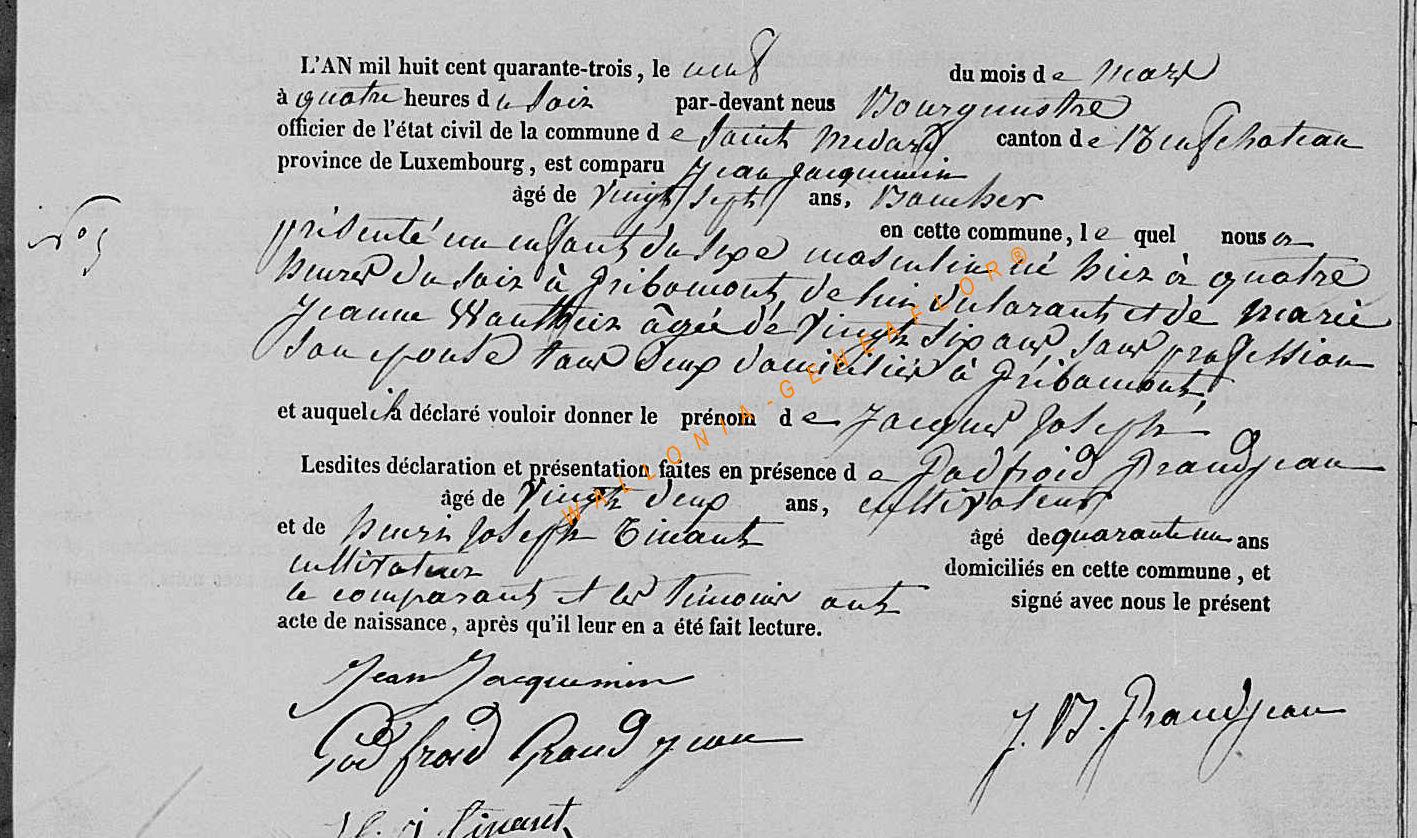 L'AN mil huit cent quarante-trois, le neuf du mois de Mars
à quatre heures du soir par-devant nous Bourgmestre
officier de l'état civil de la commune de Saint Medard canton de Neufchateau
province de Luxembourg, est comparu Jean Jacquemin
âgé de vingt sept ans, Boucher
N° 5
en cette commune, lequel nous a
présenté un enfant du sexe masculin né hier à quatre
heures du soir à Gribomont, de lui déclarant et de Marie
Jeanne Wauthier âgée de vingt six ans, sans profession
son épouse tous deux domiciliés à Gribomont,
et auquel il a déclaré vouloir donner le prénom de Jacques Joseph
Lesdites déclaration et présentation faites en présence de Godfroid Grandjean
âgé de vingt deux ans, cultivateur
et de henri Joseph Tinant âgé de quarante un ans
cultivateur domiciliés en cette commune, et
le comparant et les témoins ont signé avec nous le présent
acte de naissance, après qu'il leur en a été fait lecture.
Jean Jacquemin
J. B. Grandjean
Godfroid Grandjean
Tinant
WALLONIA-GENEAFLOR®